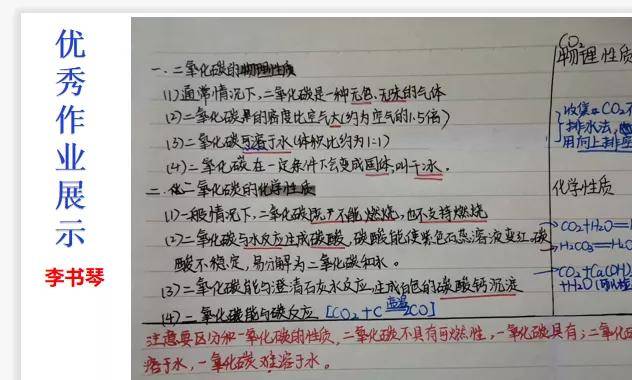 优秀作业展示
李书琴
一.二氧化碳的物理性质
(1)通常情况下,二氧化碳是一种无色、无味的气体
(2)二氧化碳的密度比空气大(约为空气的1.5倍)
(3)二氧化碳可溶于水(体积比约为1:1)
(4)二氧化碳在一定条件下会变成固体,叫干冰。
二.二氧化碳的化学性质
(1)一般情况下,二氧化碳既不能燃烧,也不支持燃烧
(2)二氧化碳与水反应生成碳酸,碳酸能使紫色石蕊溶液变红,碳
酸不稳定,易分解为二氧化碳和水。
(3)二氧化碳能与澄清石灰水反应,生成白色的碳酸钙沉淀
(4)二氧化碳能与碳反应 [CO₂+C 高温 2CO]
注意要区分和一氧化碳的性质,二氧化碳不具有可燃性,一氧化碳具有;二氧化
溶于水,一氧化碳难溶于水。
CO₂
物理性质
收集 CO₂
排水法,
用向上排
化学性质
CO₂+H₂O=
H₂CO₃=H₂O
CO₂+Ca(OH)
+H₂O